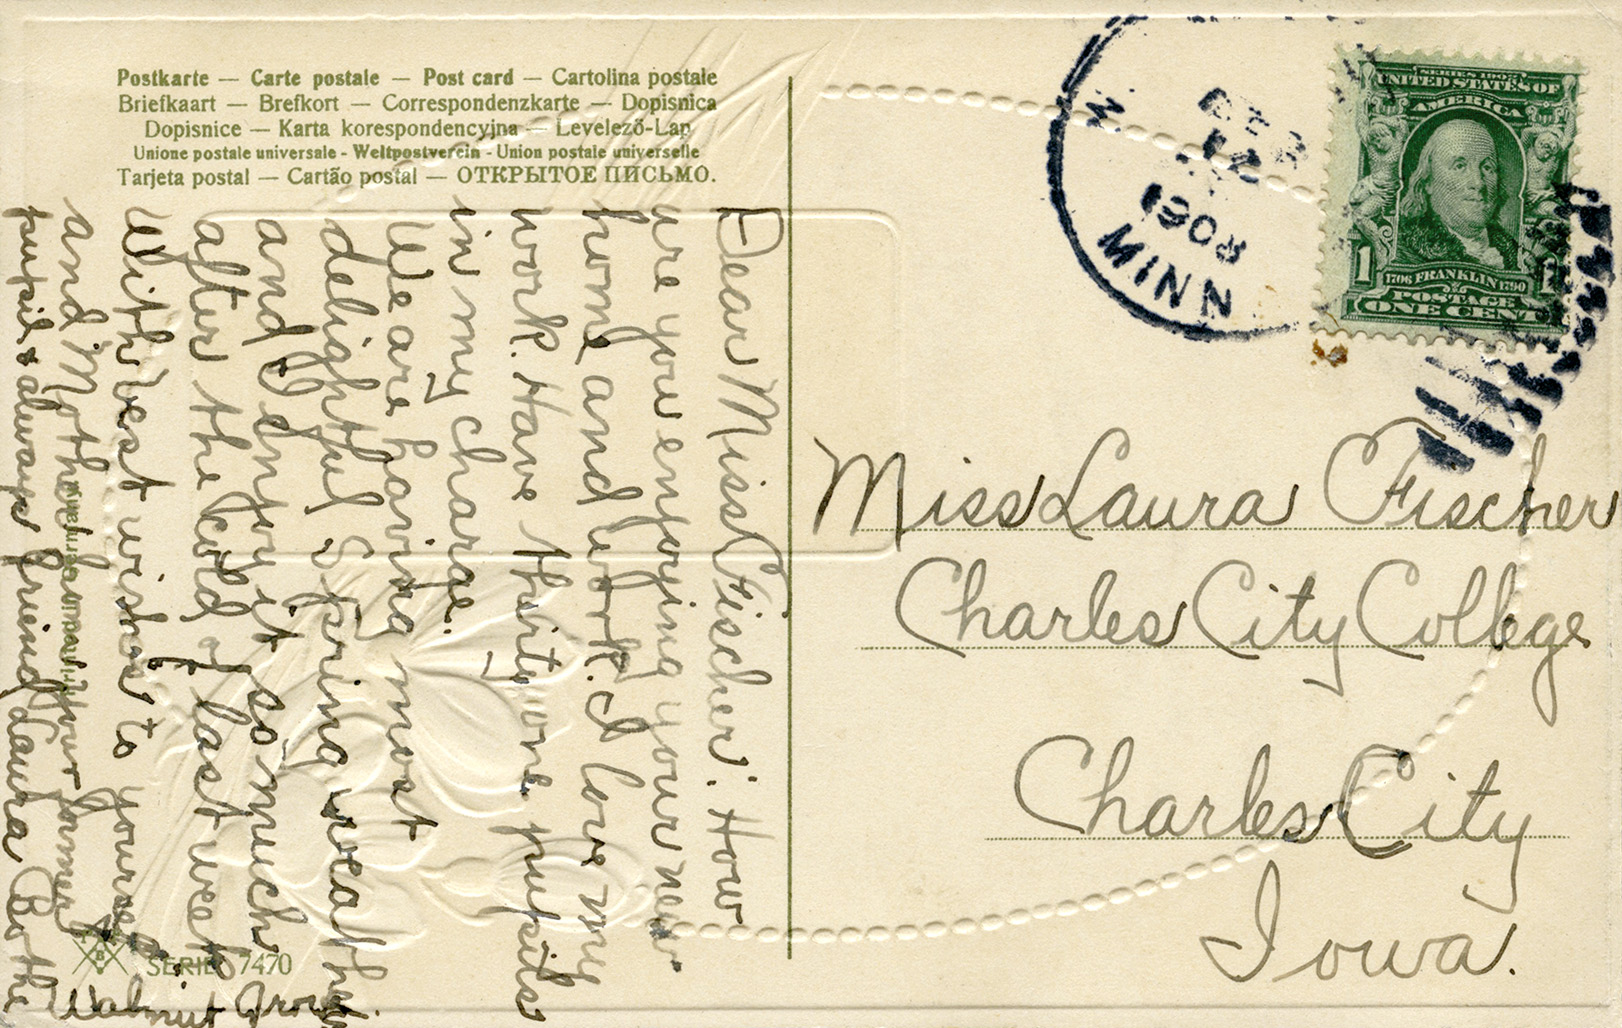 Postkarte — Carte postale — Post card — Cartolina postale
Briefkaart — Brefkort — Correspondenzkarte — Dopisnica
Dopisnice — Karta korespondencyjna — Levelező-Lap
Unione postale universale - Weltpostverein - Union postale universelle
Tarjeta postal — Cartão postal — ОТКРЫТОЕ ПИСЬМО.
Dear Miss Fischer: How
are you enjoying your new
home and work. I love my
work. Have thirty one pupils
in my charge.
We are having most
delightful Spring weather
and I enjoy it so much
after the cold of last week
With best wishes to yourself
and Mother Your former
pupil & always friend Laura Bothe
Walnut Grove
SERIE 7470
DEC
12
1908
MINN
SERIES 1902
UNITED STATES OF
AMERICA
1 1
1706 FRANKLIN 1790
POSTAGE
ONE CENT
Miss Laura Fischer
Charles City College
Charles City
Iowa.